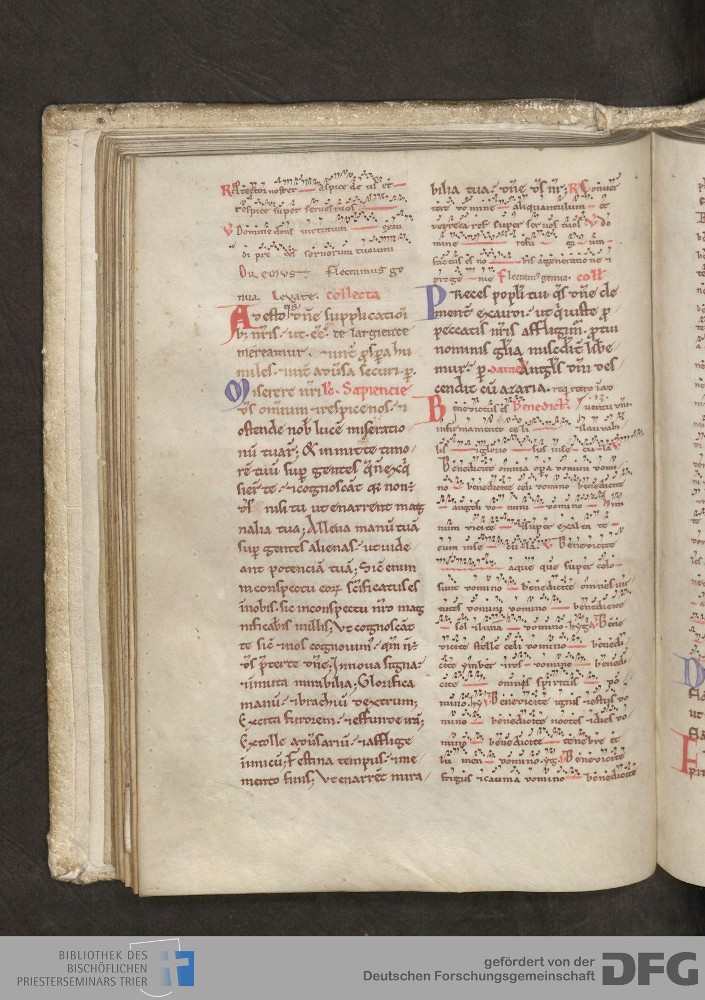 Protector noster aspice deus et
respice super seruos tuos
V Domine deus uirtutum exau
di pre ces seruorum tuorum
Oremus Flectamus ge
nua. Leuate. collecta
Adesto qs dne supplicatioi
b; nris. ut eē te largiente
mereamur. inť pspa hu
miles. inť aduersa securi. p.
Miserere nri lc. Sapiencie
ds omnium respice nos. i
ostende nob lucē miseratio
nū tuar; & inmitte timo
rē tuū sup gentes
ut cognoscāt qa non ē
ds nisi tu ut enarrent mag
nalia tua; Alleua manū tuā
sup gentes alienas ut uide
ant potenciā tuā; Sic enim
in conspectu eorum scificatus es
in nobis. sic in conspectu nro mag
nificaberis in illis; Vt cognoscāt
te sic nos cognouim. qm n ē
ds preter te dne; Innoua signa
inmuta mirabilia; Glorifica
manū brachiū dextrum;
Excita furorem effunde irā;
Extolle aduersariū afflige
inimicū; Festina tempus me
mento finis; Vt enarrēt mira
bilia tua. dne ds nr; R Conuer
tere domine aliquantulum et
deprecare super seruos tuos V Do
mine refu gi um
factus es no bis a generatione
proge nie Flectam genua. coll
Preces popli tui qs dne cle
menť exaudi. ut q iuste p
peccatis nris affligim. p tui
nominis glia misedit libe
mur. p. Angls dni des
cendit cū azaria.
Benedictus es Benedict
in firmamento celi laudabi
lis gloriosus in secula
Benedicite omnia opa domini domi
no benedicite celi domino benedicite
angeli domini domino Ym
num dicite superexaltate
eum in secula. V Benedicite
aque que super celos
sunt domino benedicite omnes uir
tutes domini domino benedicite
sol luna domino hy V Bene
dicite stelle celi domino benedi
cite ymber ros domino benedi
cite omnis spiritus do
mino hy V Benedicite ignis estus do
mino benedicite noctes dies do
mino benedicite tenebre et
lumen domino. yg. Benedicite
frigus cauma domino benedicite
BIBLIOTHEK DES
BISCHÖFLICHEN
PRIESTERSEMINARS TRIER
gefördert von der
Deutschen Forschungsgemeinschaft
DFG